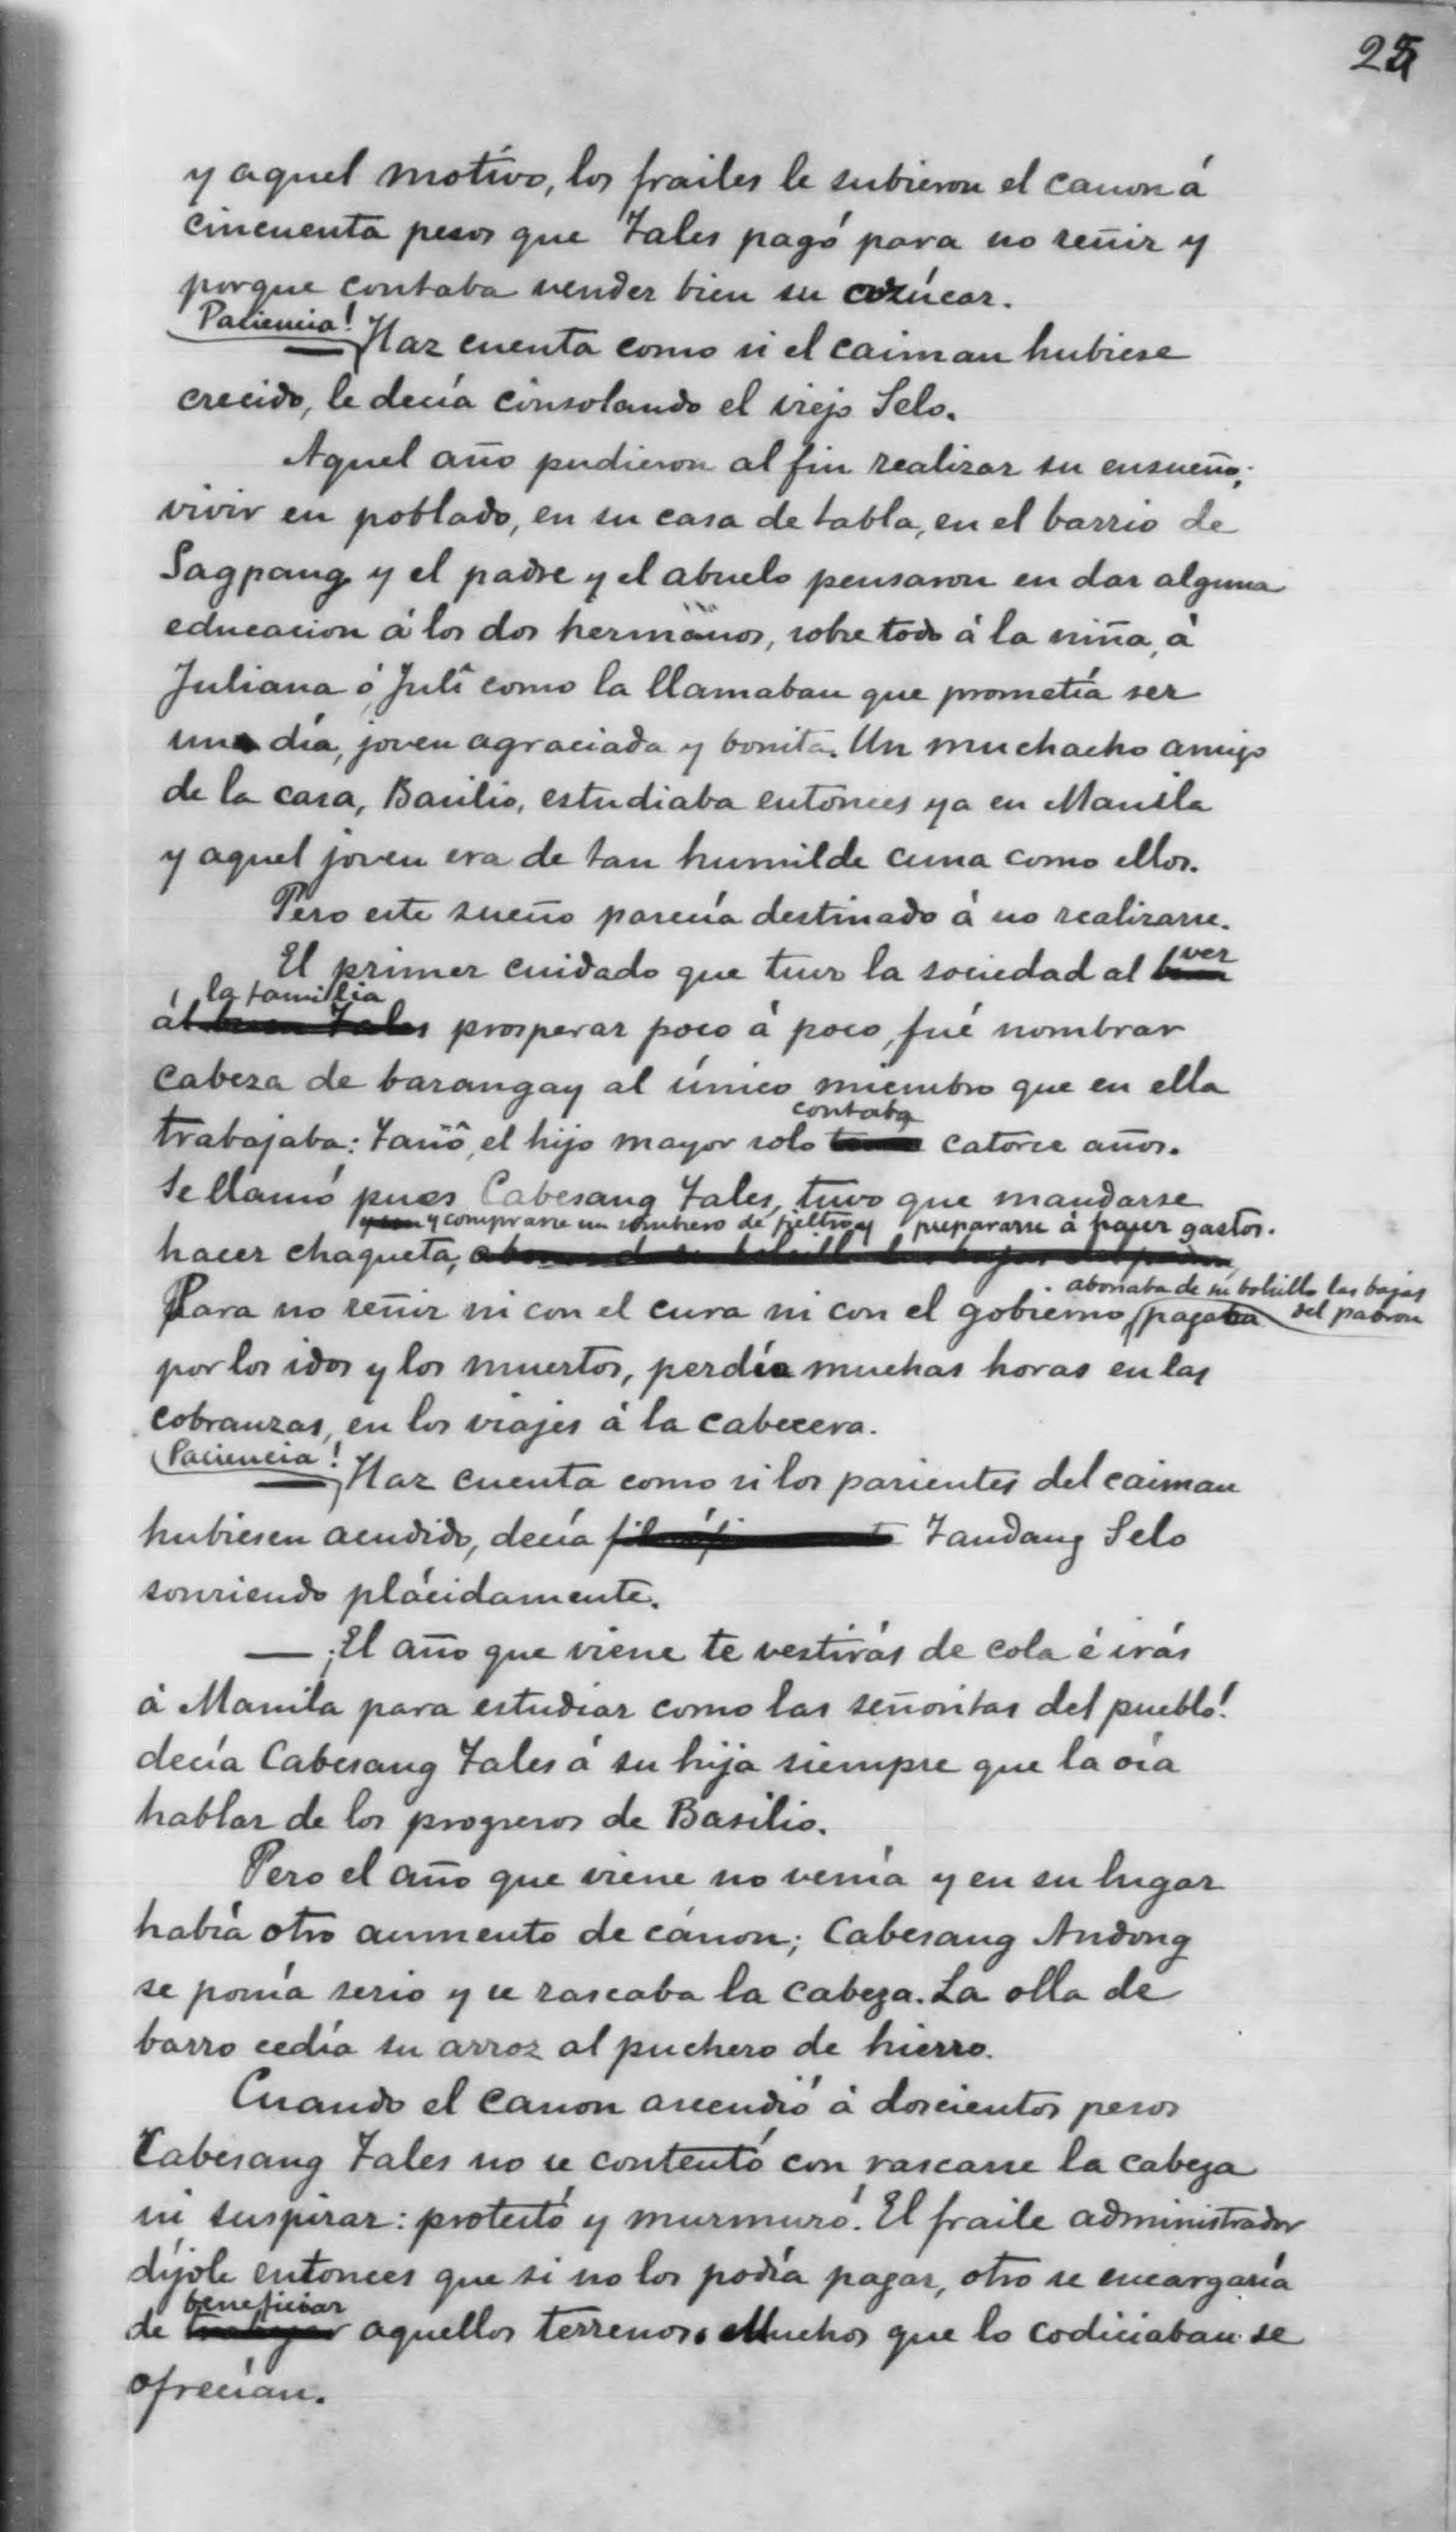 25
y aquel motivo, los frailes le subieron el canon á
cincuenta pesos que Tales pagó para no reñir y
porque contaba vender bien su azúcar.
Paciencia!
— Haz cuenta como si el caiman hubiese
crecido, le decía consolando el viejo Selo.
Aquel año pudieron al fin realizar su ensueño:
vivir en poblado, en su casa de tabla, en el barrio de
Sagpang y el padre y el abuelo pensaron en dar alguna
educacion á los dos hermanos, sobre todo á la niña, á
Juliana ó Julî como la llamaban que prometía ser
un día, joven agraciada y bonita. Un muchacho amigo
de la casa, Basilio, estudiaba entonces ya en Manila
y aquel joven era de tan humilde cuna como ellos.
Pero este sueño parecía destinado á no realizarse.
El primer cuidado que tuvo la sociedad al ver
á la familia
al buen Tales prosperar poco á poco, fué nombrar
cabeza de barangay al único miembro que en ella
contaba
trabajaba: Tanô, el hijo mayor solo catorce años.
Se llamó pues Cabesang Tales, tuvo que mandarse
y comprarse un sombrero de fieltro y prepararse á hacer gastos.
hacer chaqueta,
abonaba de su bolsillo las bajas
del padron
Para no reñir ni con el cura ni con el gobierno, pagaba
por los idos y los muertos, perdía muchas horas en las
cobranzas, en los viajes á la cabecera.
Paciencia!
— Haz cuenta como si los parientes del caiman
hubiesen acudido, decía Tandang Selo
sonriendo plácidamente.
— ¡El año que viene te vestirás de cola é irás
á Manila para estudiar como las señoritas del pueblo!
decía Cabesang Tales á su hija siempre que la oía
hablar de los progresos de Basilio.
Pero el año que viene no venía y en su lugar
había otro aumento de cánon; Cabesang Andong
se ponía serio y se rascaba la cabeza. La olla de
barro cedía su arroz al puchero de hierro.
Cuando el canon ascendió á doscientos pesos
Cabesang Tales no se contentó con rascarse la cabeza
ni suspirar: protestó y murmuró. El fraile administrador
díjole entonces que si no los podía pagar, otro se encargaría
beneficiar
de trabajar aquellos terrenos. Muchos que lo codiciaban se
ofrecían.